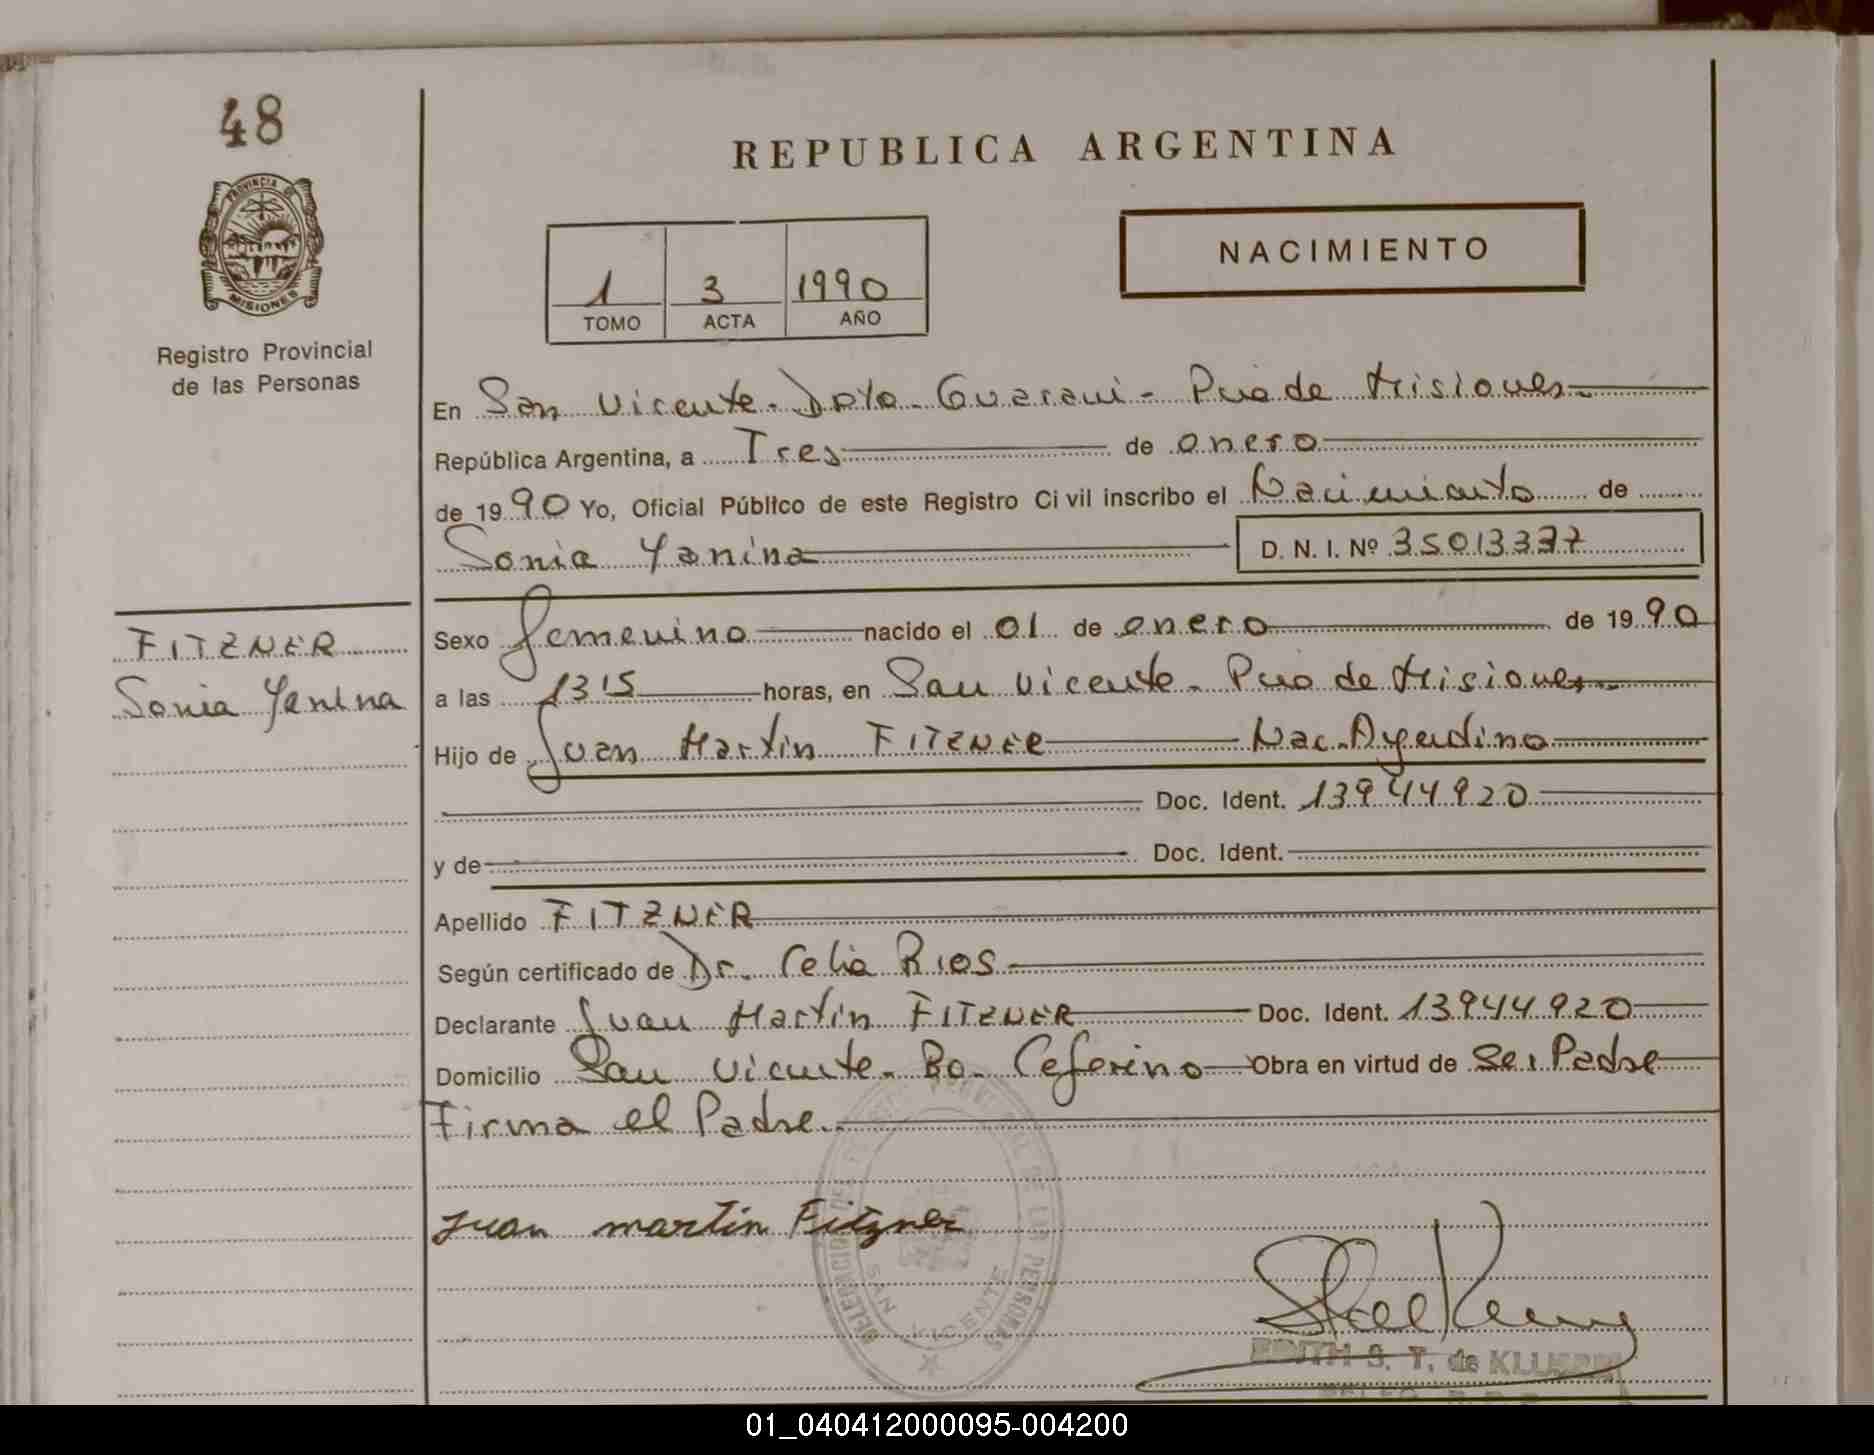 48
PROVINCIA DE
MISIONES
Registro Provincial
de las Personas
REPUBLICA ARGENTINA
NACIMIENTO
1 3 1990
TOMO ACTA AÑO
En San Vicente - Dpto - Guarani - Pcia de Misiones
República Argentina, a Tres de enero
de 1990 Yo, Oficial Público de este Registro Civil inscribo el Nacimiento de
Sonia Yanina D. N. I. Nº 35013337
FITZNER
Sonia Yanina
Sexo femenino nacido el 01 de enero de 1990
a las 1315 horas, en San Vicente - Pcia de Misiones
Hijo de Juan Martin FITZNER Nac. Argentino
Doc. Ident. 13944920
y de Doc. Ident.
Apellido FITZNER
Según certificado de Dr. Celia Rios
Declarante Juan Martin FITZNER Doc. Ident. 13944920
Domicilio San Vicente - Bo - Ceferino Obra en virtud de Ser Padre
Firma el Padre.
Juan martin Fitzner
SAN VICENTE
S. T. de
01_040412000095-004200